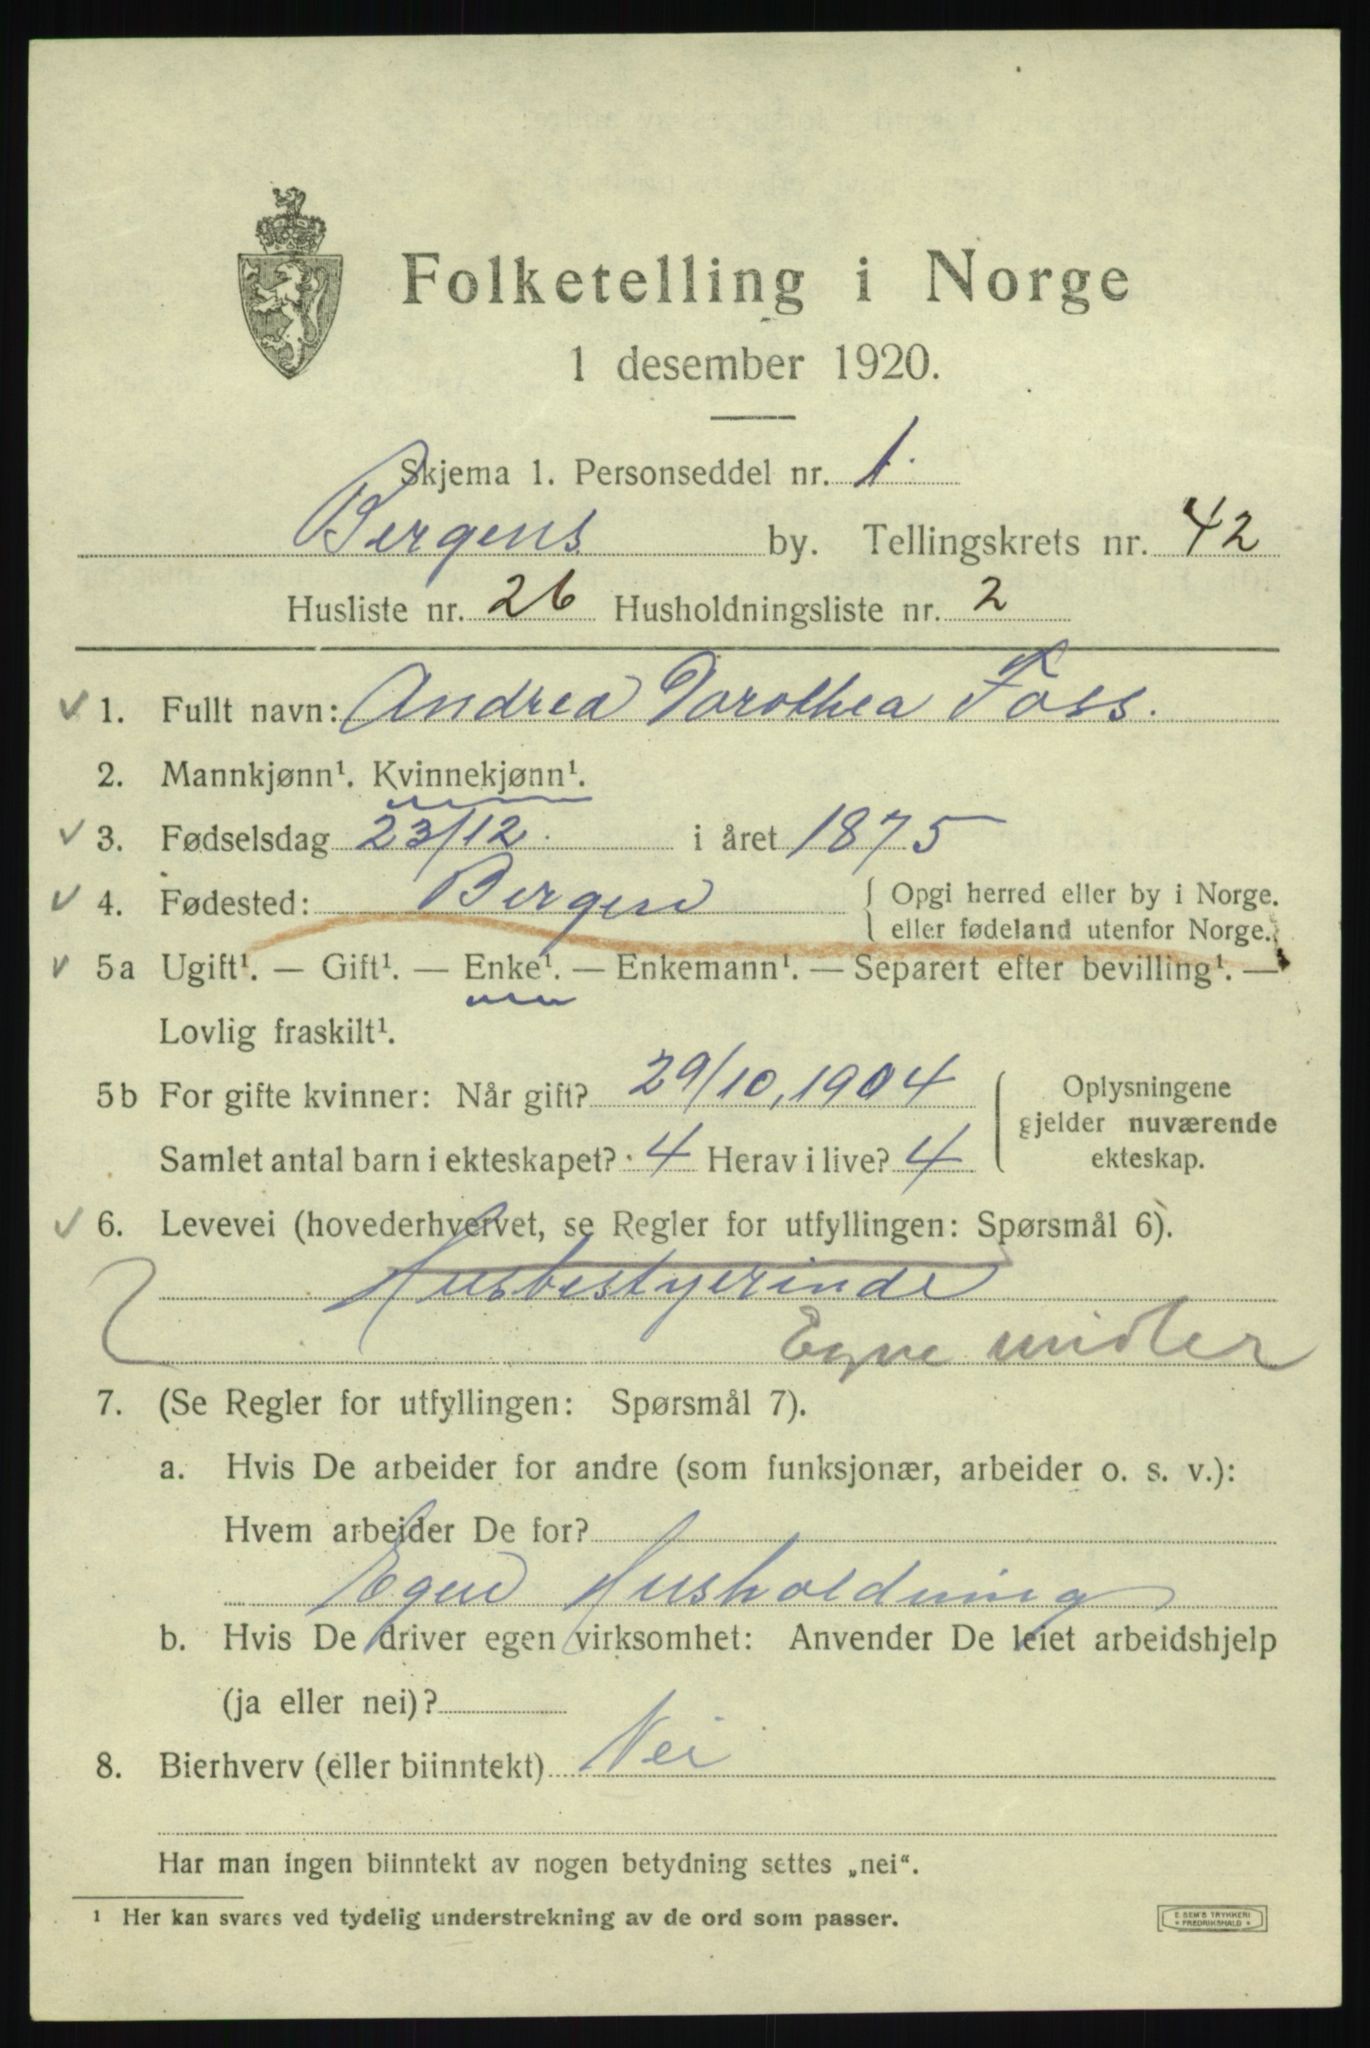 Folketelling i Norge
1 desember 1920.
Skjema 1. Personseddel nr. 1.
Bergens by. Tellingskrets nr. 42
Husliste nr. 26 Husholdningsliste nr. 2
1. Fullt navn: Andrea Dorothea Foss.
2. Mannkjønn¹. Kvinnekjønn¹.
3. Fødselsdag 23/12. i året 1875
4. Fødested: Bergen { Opgi herred eller by i Norge.
eller fødeland utenfor Norge.
5a Ugift¹. — Gift¹. — Enke¹. — Enkemann¹. — Separert efter bevilling¹. —
Lovlig fraskilt¹.
5b For gifte kvinner: Når gift? 29/10, 1904
Samlet antal barn i ekteskapet? 4 Herav i live? 4
Oplysningene
gjelder nuværende
ekteskap.
6. Levevei (hovederhvervet, se Regler for utfyllingen: Spørsmål 6).
Husbestyerinde
Egne midler
7. (Se Regler for utfyllingen: Spørsmål 7).
a. Hvis De arbeider for andre (som funksjonær, arbeider o. s. v.):
Hvem arbeider De for?
Egen Husholdning
b. Hvis De driver egen virksomhet: Anvender De leiet arbeidshjelp
(ja eller nei)?
8. Bierhverv (eller biinntekt) Nei
Har man ingen biinntekt av nogen betydning settes „nei“.
¹ Her kan svares ved tydelig understrekning av de ord som passer.
E. SEM'S TRYKKERI
• FREDRIKSHALD •